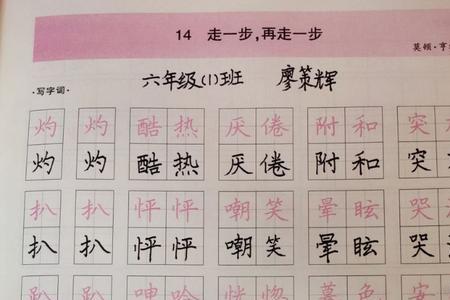 14 走一步,再走一步
莫顿·亨
六年级(1)班 廖策辉
·写字词·
灼 灼 酷热 厌倦 附和 突
灼 灼 酷热 厌倦 附和 突
扒 扒 怦怦 嘲笑 晕眩 哭
扒 扒 怦怦 嘲笑 晕眩 哭
趴 趴 呻吟 恍惚 暮色 安